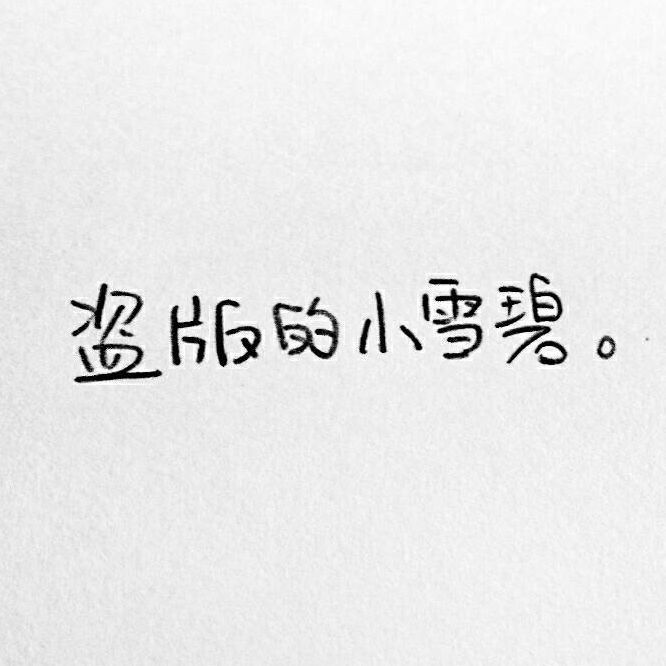 盗版的小雪碧。